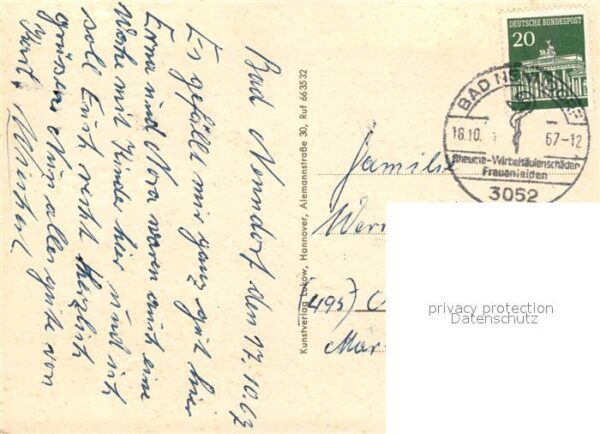 Bad Nenndorf den 17.10.67
Es gefällt mir ganz gut hier
Erna und Nora waren auch eine
Woche mit Kinder hier und ich
soll Euch recht herzlich
grüssen Nun alles gute von
Kunstverlag Lukow, Hannover, Alemannstraße 30, Ruf 663532
DEUTSCHE BUNDESPOST
20
BAD NE
18.10.
67-12
Rheuma-Wirbelsäulenschäden
Frauenleiden
3052
Familie
Wer
(495)
privacy protection
Datenschutz